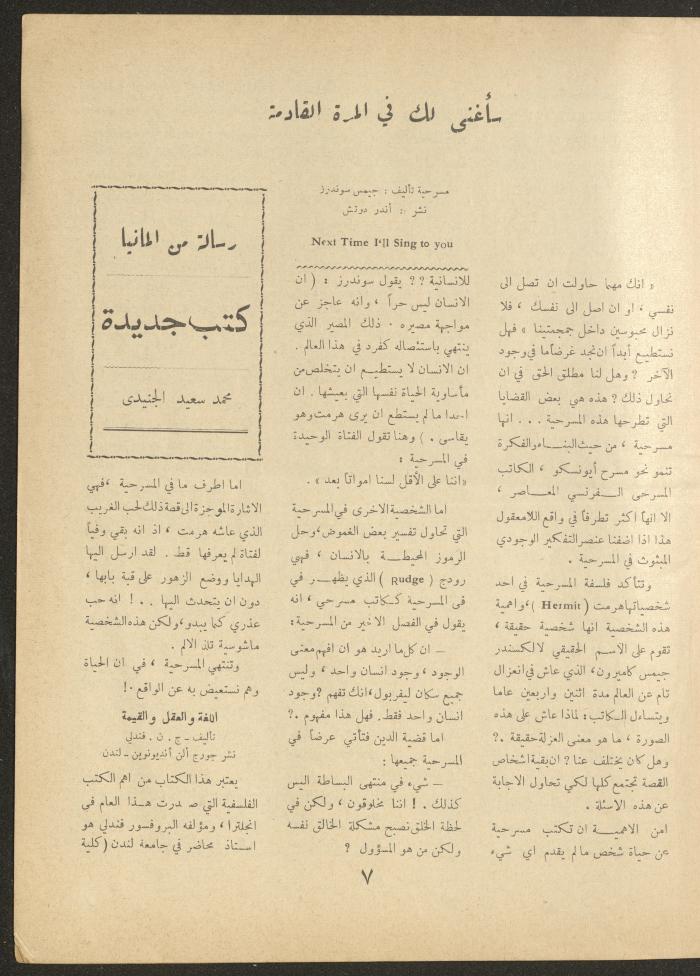 سأغني لك في المرة القادمة
مسرحية تأليف : جيمس سوندرز
نشر : أندر دوتش
Next Time I'll Sing to you
« انك مهما حاولت ان تصل الى
نفسي ، او ان اصل الى نفسك ، فلا
نزال محبوسين داخل جمجمتينا » فهل
نستطيع أبداً ان نجد غرضاً ما في وجود
الآخر ؟ وهل لنا مطلق الحق في ان
نحاول ذلك ؟ هذه هي بعض القضايا
التي تطرحها هذه المسرحية . . . انها
مسرحية ، من حيث البناء والفكرة
تنمو نحو مسرح أيونسكو ، الكاتب
المسرحى الفرنسي المعاصر ،
الا انها أكثر تطرفاً في واقع اللامعقول
هذا اذا اضفنا عنصر التفكير الوجودي
المبثوث في المسرحية .
وتتأكد فلسفة المسرحية في احد
شخصياتها هرمت ( Hermit ) ، واهمية
هذه الشخصية انها شخصية حقيقة ،
تقوم على الاسم الحقيقي لالكسندر
جيمس كاميرون ، الذي عاش في انعزال
تام عن العالم مدة اثنين واربعين عاما
ويتساءل الكاتب : لماذا عاش على هذه
الصورة ، ما هو معنى العزلة حقيقة . ؟
وهل كان يختلف عنا ؟ ان بقية اشخاص
القصة تجتمع كلها لكي تحاول الاجابة
عن هذه الاسئلة .
امن الاهمية ان تكتب مسرحية
عن حياة شخص ما لم يقدم اي شيء
للانسانية ؟ ؟ يقول سوندرز : ( ان
الانسان ليس حراً ، وانه عاجز عن
مواجهة مصيره . ذلك المصير الذي
ينتهي باستئصاله كفرد في هذا العالم .
ان الانسان لا يستطيع ان يتخلص من
مأساوية الحياة نفسها التي يعيشها . ان
احدا ما لم يستطع ان يرى هرمت وهو
يقاسى . ) وهنا تقول الفتاة الوحيدة
في المسرحية :
« اننا على الأقل لسنا امواتاً بعد » .
اما الشخصية الاخرى في المسرحية
التي تحاول تفسير بعض الغموض ، وحل
الرموز المحيطة بالانسان ، فهي
رودج ( Rudge ) الذي يظهر في
في المسرحية ككاتب مسرحي ، انه
يقول في الفصل الاخير من المسرحية :
ـ ان كل ما اريد هو ان افهم معنى
الوجود ، وجود انسان واحد ، وليس
جميع سكان ليفربول ، انك تفهم ؟ وجود
انسان واحد فقط . فهل هذا مفهوم . ؟
اما قضية الدين فتأتي عرضاً في
المسرحية جميعها :
ـ شيء في منتهى البساطة اليس
كذلك . ! اننا مخلوقون ، ولكن في
لحظة الخلق تصبح مشكلة الخالق نفسه
ولكن من هو المسؤول ؟
رسالة من المانيا
كتب جديدة
محمد سعيد الجنيدى
اما اطرف ما في المسرحية ، فهي
الاشارة الموجزة الى قصة ذلك الحب الغريب
الذي عاشه هرمت ، اذ انه بقي وفياً
لفتاة لم يعرفها قط . لقد ارسل اليها
الهدايا ووضع الزهور على قبة بابها ،
دون ان يتحدث اليها . . ! انه حب
عذري كما يبدو ، ولكن هذه الشخصية
ماشوسية تلذ الالم .
وتنتهي المسرحية ، في ان الحياة
وهم نستعيض به عن الواقع . !
اللغة والعقل والقيمة
تأليف ـ ج . ن . فندلي
نشر جورج ألن أنديونوين ـ لندن
يعتبر هذا الكتاب من اهم الكتب
الفلسفية التي صدرت هذا العام في
انجلترا ، ومؤلفه البروفسور فندلي هو
استاذ محاضر في جامعة لندن ( كلية
٧